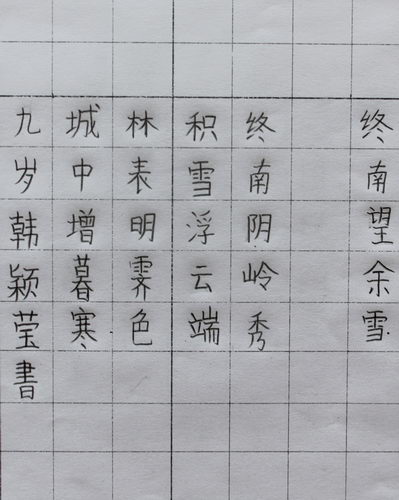 终南望余雪
终南阴岭秀
积雪浮云端
林表明霁色
城中增暮寒
九岁韩颖莹書